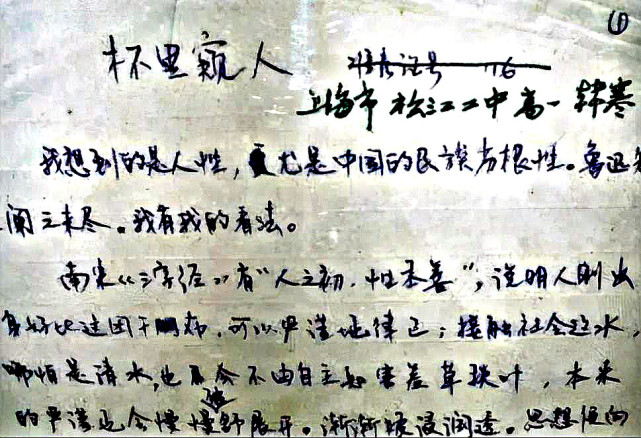 ①
杯里窥人
上海市松江二中高一 韩寒
我想到的是人性，尤是中国的民族劣根性。鲁迅
阐之未尽。我有我的看法。
南宋《三字经》有“人之初，性本善”，说明人刚出
身好比这团干布，可以严谨地律己；接触社会这水，
哪怕是清水，也会不由自主如害羞草叶，本来
的严谨也会慢慢地舒展开。渐渐被浸润透。思想便向